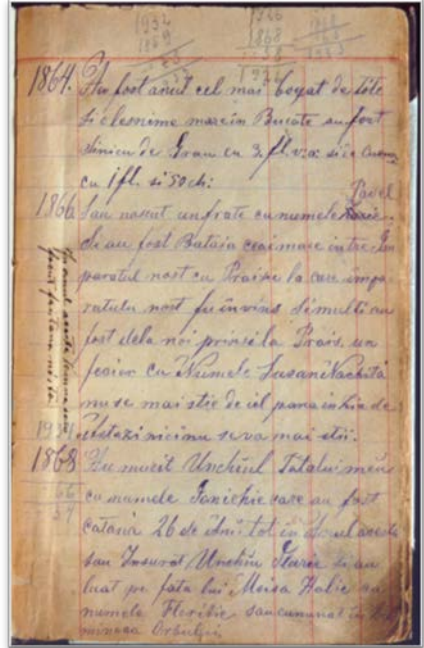 1932 1926 1868
1869 1868
58
1926
1864. Au fost anul cel mai bogat de tóte
si olesnime mare in Bucate au fost
Vinicu de Grau cu 3 fl. v:a: si ce
cu 1 fl. si 50 ch:
Pavel
1866 Sau nascut un frate cu numele
Si au fost Bataia cea mai mare intre Im
paratul nost cu Praisu la care impa
ratulu nost fu învins si multi au
fost dela noi prinsi la Prais. un
fecior cu Numele Susan Nachita
nu se mai stie de iel pana in hia de
1934 astazi nici nu se va mai stii.
1868 Au murit Unchiul Tatalui meu
66 cu numele Ianichie care au fost
37 catana 26 de Ani tot in Anul acesta
sau Insurat Unchiu si au
luat pe fata lui Moisa Halic cu
numele sau cununat in
mineca Orbului
In anul acesta
facut fantana